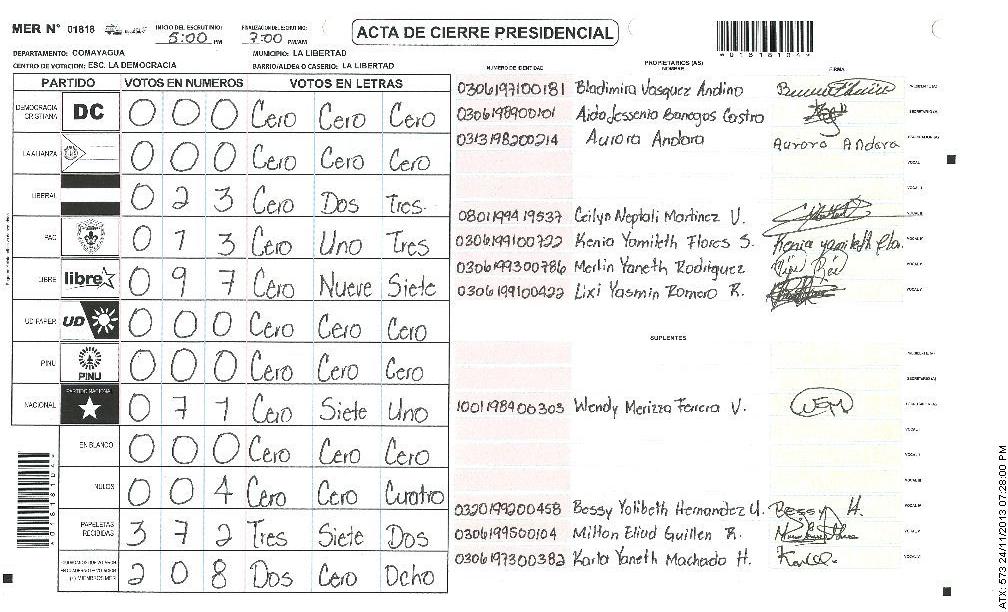 MER N° 01818 INICIO DEL ESCRUTINIO: 5:00 PM FINALIZACION ESCRUTINIO: 7:00 PM/AM
ACTA DE CIERRE PRESIDENCIAL
DEPARTAMENTO: COMAYAGUA MUNICIPIO: LA LIBERTAD
CENTRO DE VOTACION: ESC. LA DEMOCRACIA BARRIO/ALDEA O CASERIO: LA LIBERTAD
PARTIDO VOTOS EN NUMEROS VOTOS EN LETRAS
DEMOCRACIA CRISTIANA DC 0 0 0 Cero Cero Cero
LA ALIANZA 0 0 0 Cero Cero Cero
LIBERAL 0 2 3 Cero Dos Tres
PAC 0 1 3 Cero Uno Tres
LIBRE libre 0 9 7 Cero Nueve Siete
UD FAPER UD 0 0 0 Cero Cero Cero
PINU PINU 0 0 0 Cero Cero Cero
NACIONAL PARTIDO NACIONAL 0 7 1 Cero Siete Uno
EN BLANCO 0 0 0 Cero Cero Cero
NULOS 0 0 4 Cero Cero Cuatro
PAPELETAS RECIBIDAS 3 7 2 Tres Siete Dos
2 0 8 Dos Cero Ocho
NUMERO DE IDENTIDAD PROPIETARIOS (AS) NOMBRE FIRMA
0306197100181 Bladimira Vasquez Andino
0306198900101 Aida Jessenia Banegas Castro
0313198200214 Aurora Andara Aurora Andara
0801199419537 Ceilyn Neptali Martinez V.
0306199100722 Kenia Yamileth Flores S. Kenia yamileth Flo.
0306199300786 Merlin Yaneth Rodriguez
0306199100422 Lixi Yasmin Romero R.
SUPLENTES
1001198400303 Wendy Merizza Ferrera V. WFM
0320199200458 Bessy Yolibeth Hernandez U. Bessy H.
0306199500104 Milton Eliud Guillen R.
0306197300382 Karla Yaneth Machado H. Karla
ATX: 573 24/11/2013 07:28:00 PM